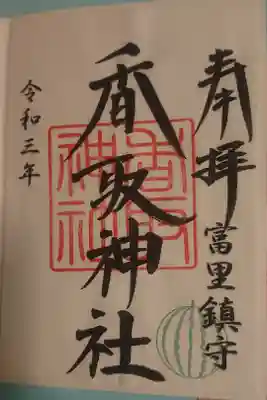 奉拝
富里鎮守
香取神社
香取
神社
令和三年